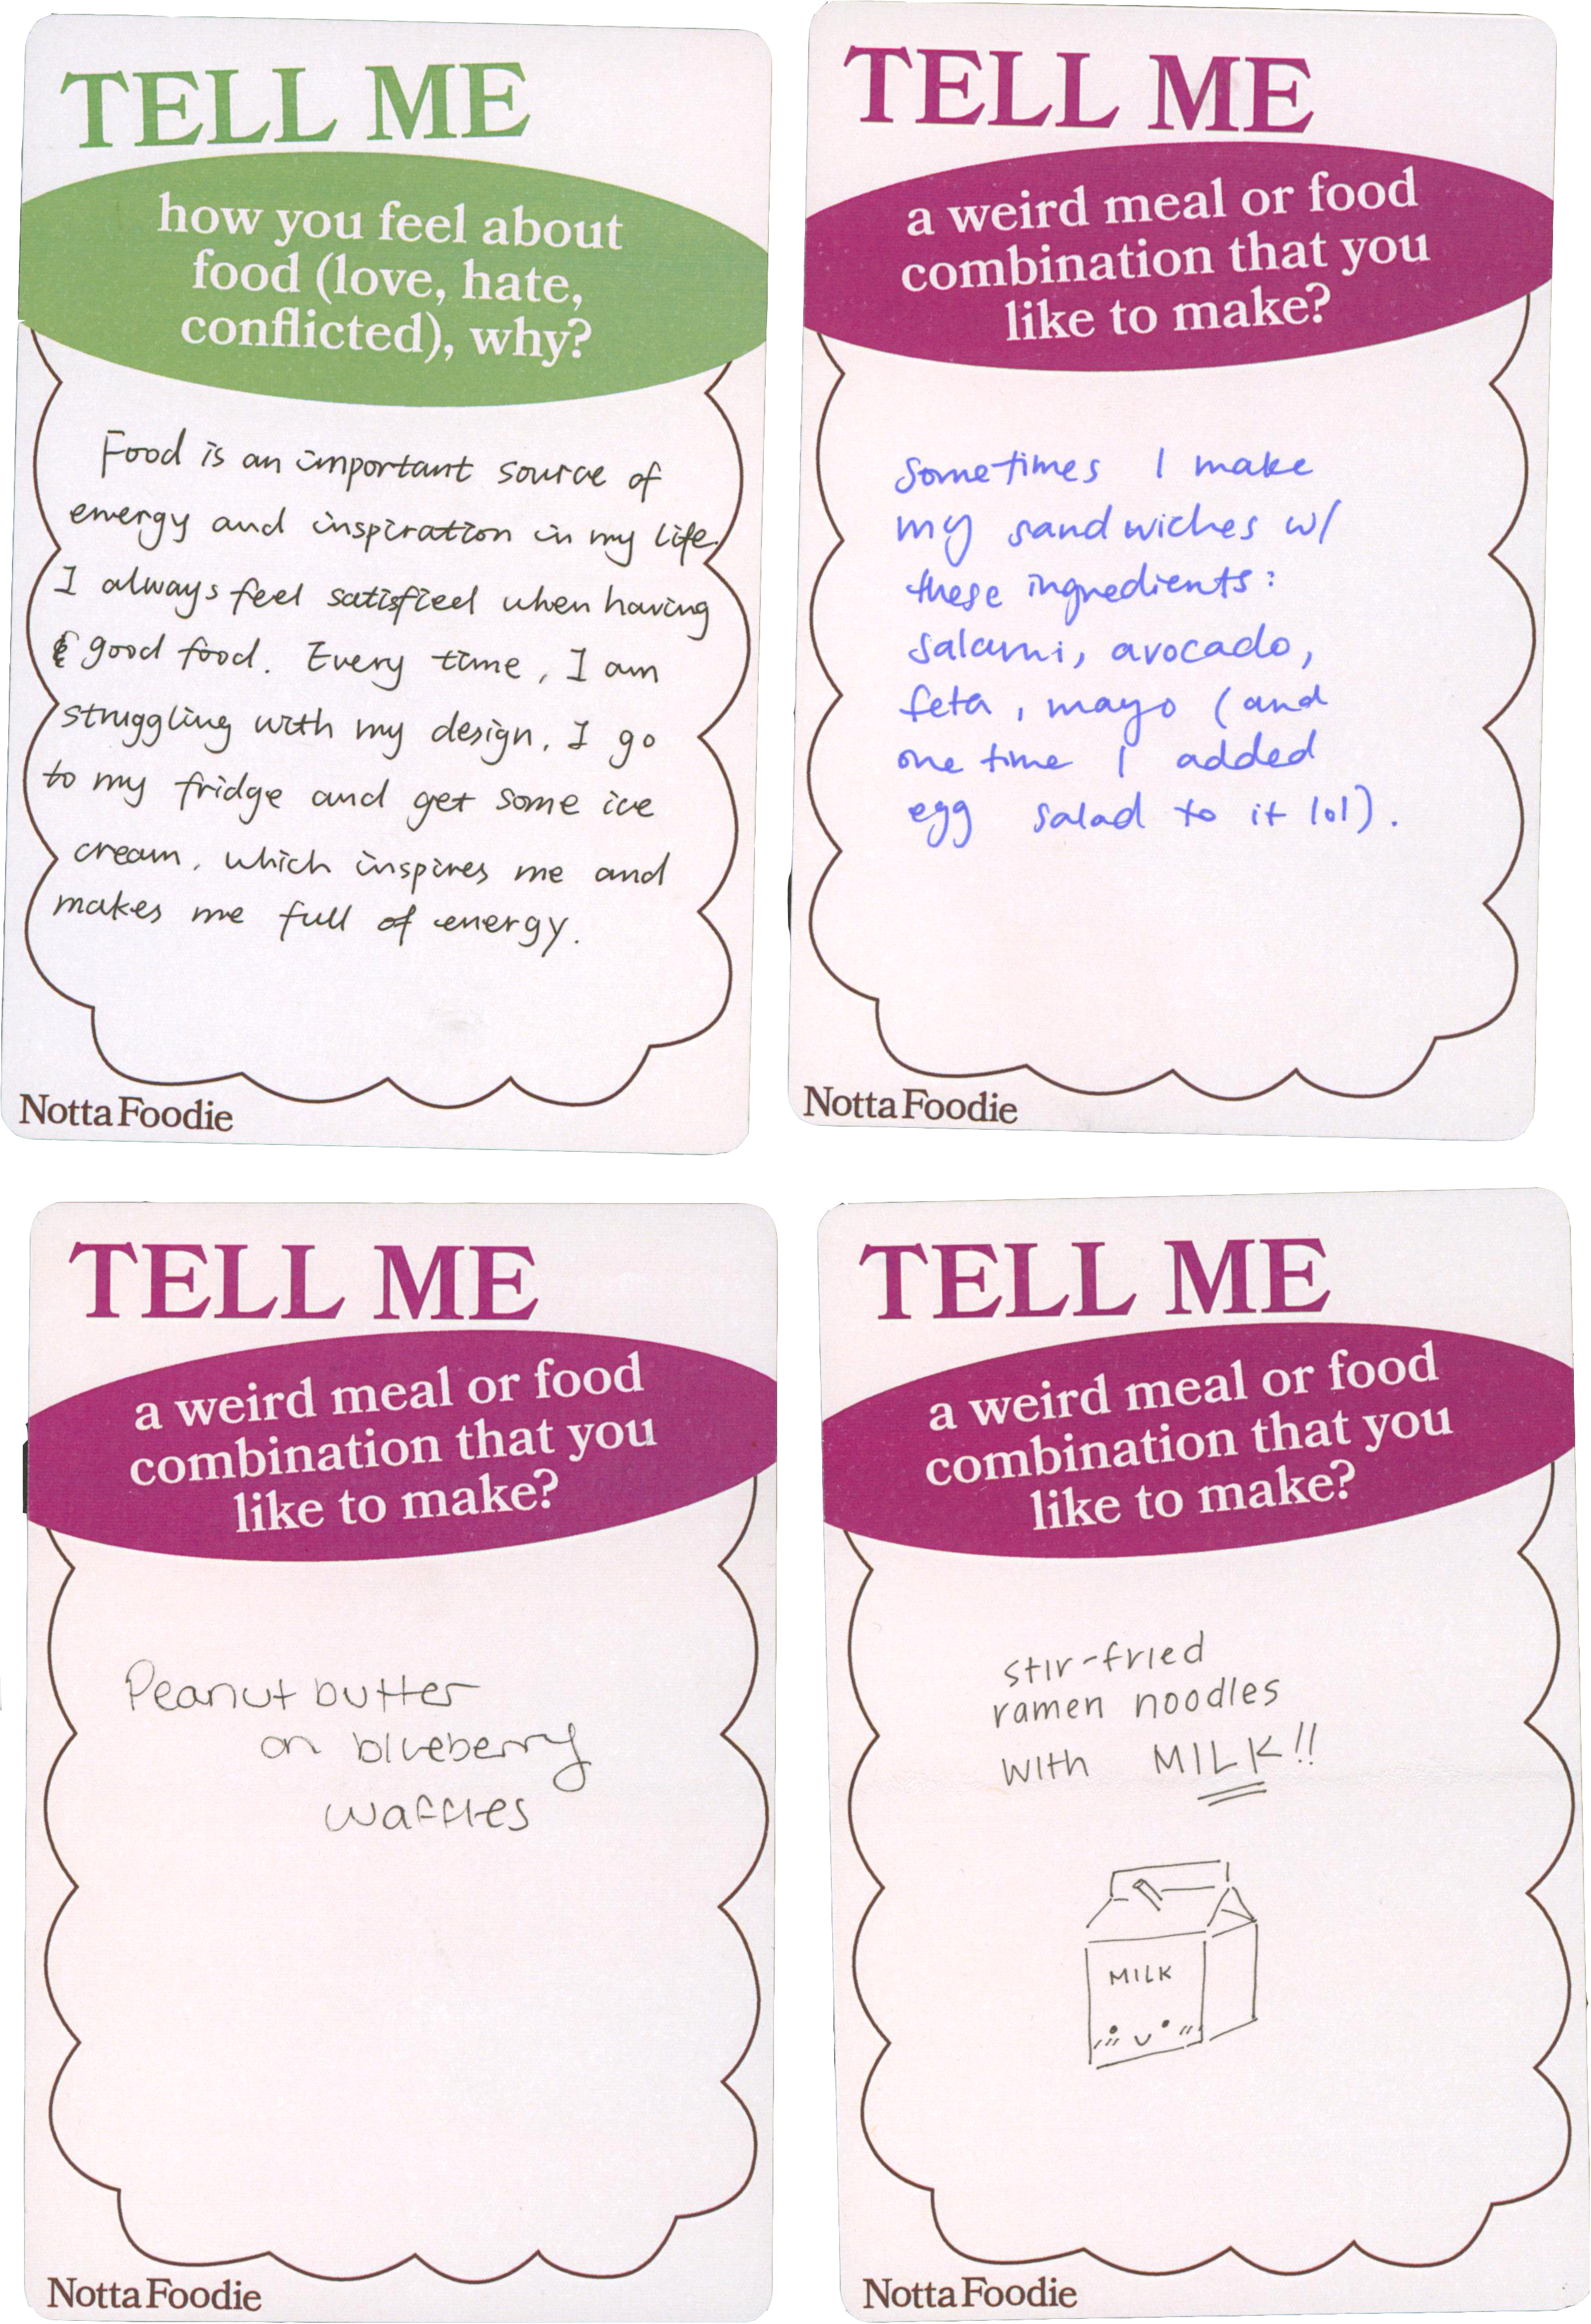 TELL ME
how you feel about
food (love, hate,
conflicted), why?
Food is an important source of
energy and inspiration in my life.
I always feel satisfied when having
good food. Every time, I am
struggling with my design, I go
to my fridge and get some ice
cream, which inspires me and
makes me full of energy.
Notta Foodie
TELL ME
a weird meal or food
combination that you
like to make?
Sometimes I make
my sandwiches w/
these ingredients:
salami, avocado,
feta, mayo (and
one time I added
egg salad to it lol).
Notta Foodie
TELL ME
a weird meal or food
combination that you
like to make?
Peanut butter
on blueberry
waffles
Notta Foodie
TELL ME
a weird meal or food
combination that you
like to make?
stir-fried
ramen noodles
with MILK!!
MILK
Notta Foodie